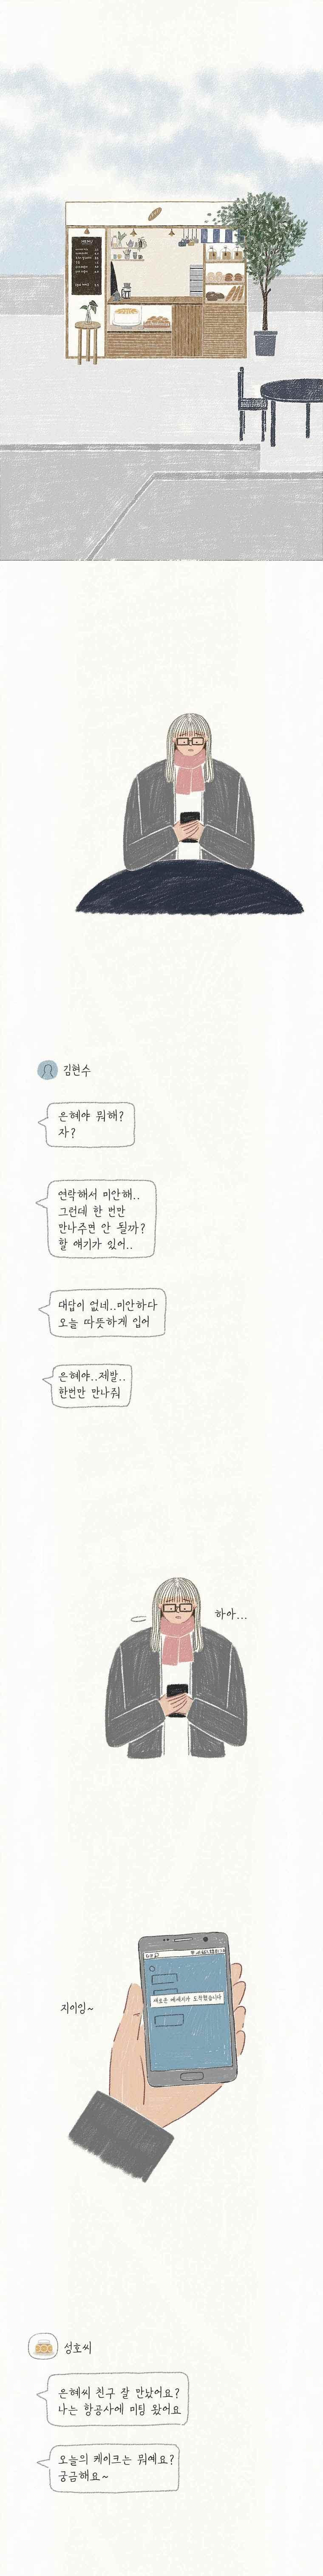 MENU
김현수
은혜야 뭐해?
자?
연락해서 미안해..
그런데 한 번만
만나주면 안 될까?
할 얘기가 있어..
대답이 없네..미안하다
오늘 따뜻하게 입어
은혜야..제발..
한번만 만나줘
하아...
지이잉~
새로운 메세지가 도착했습니다
성호씨
은혜씨 친구 잘 만났어요?
나는 항공사에 미팅 왔어요
오늘의 케이크는 뭐예요?
궁금해요~